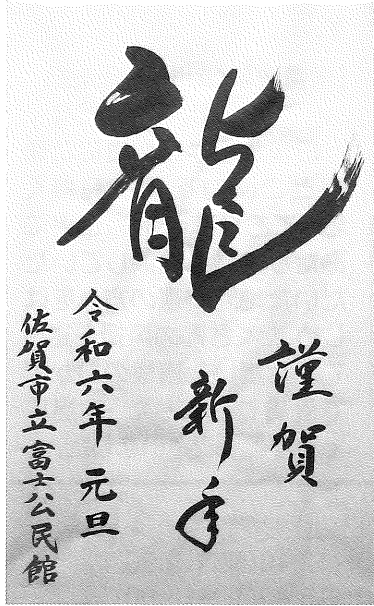 龍
謹賀
新年
令和六年 元旦
佐賀市立富士公民館